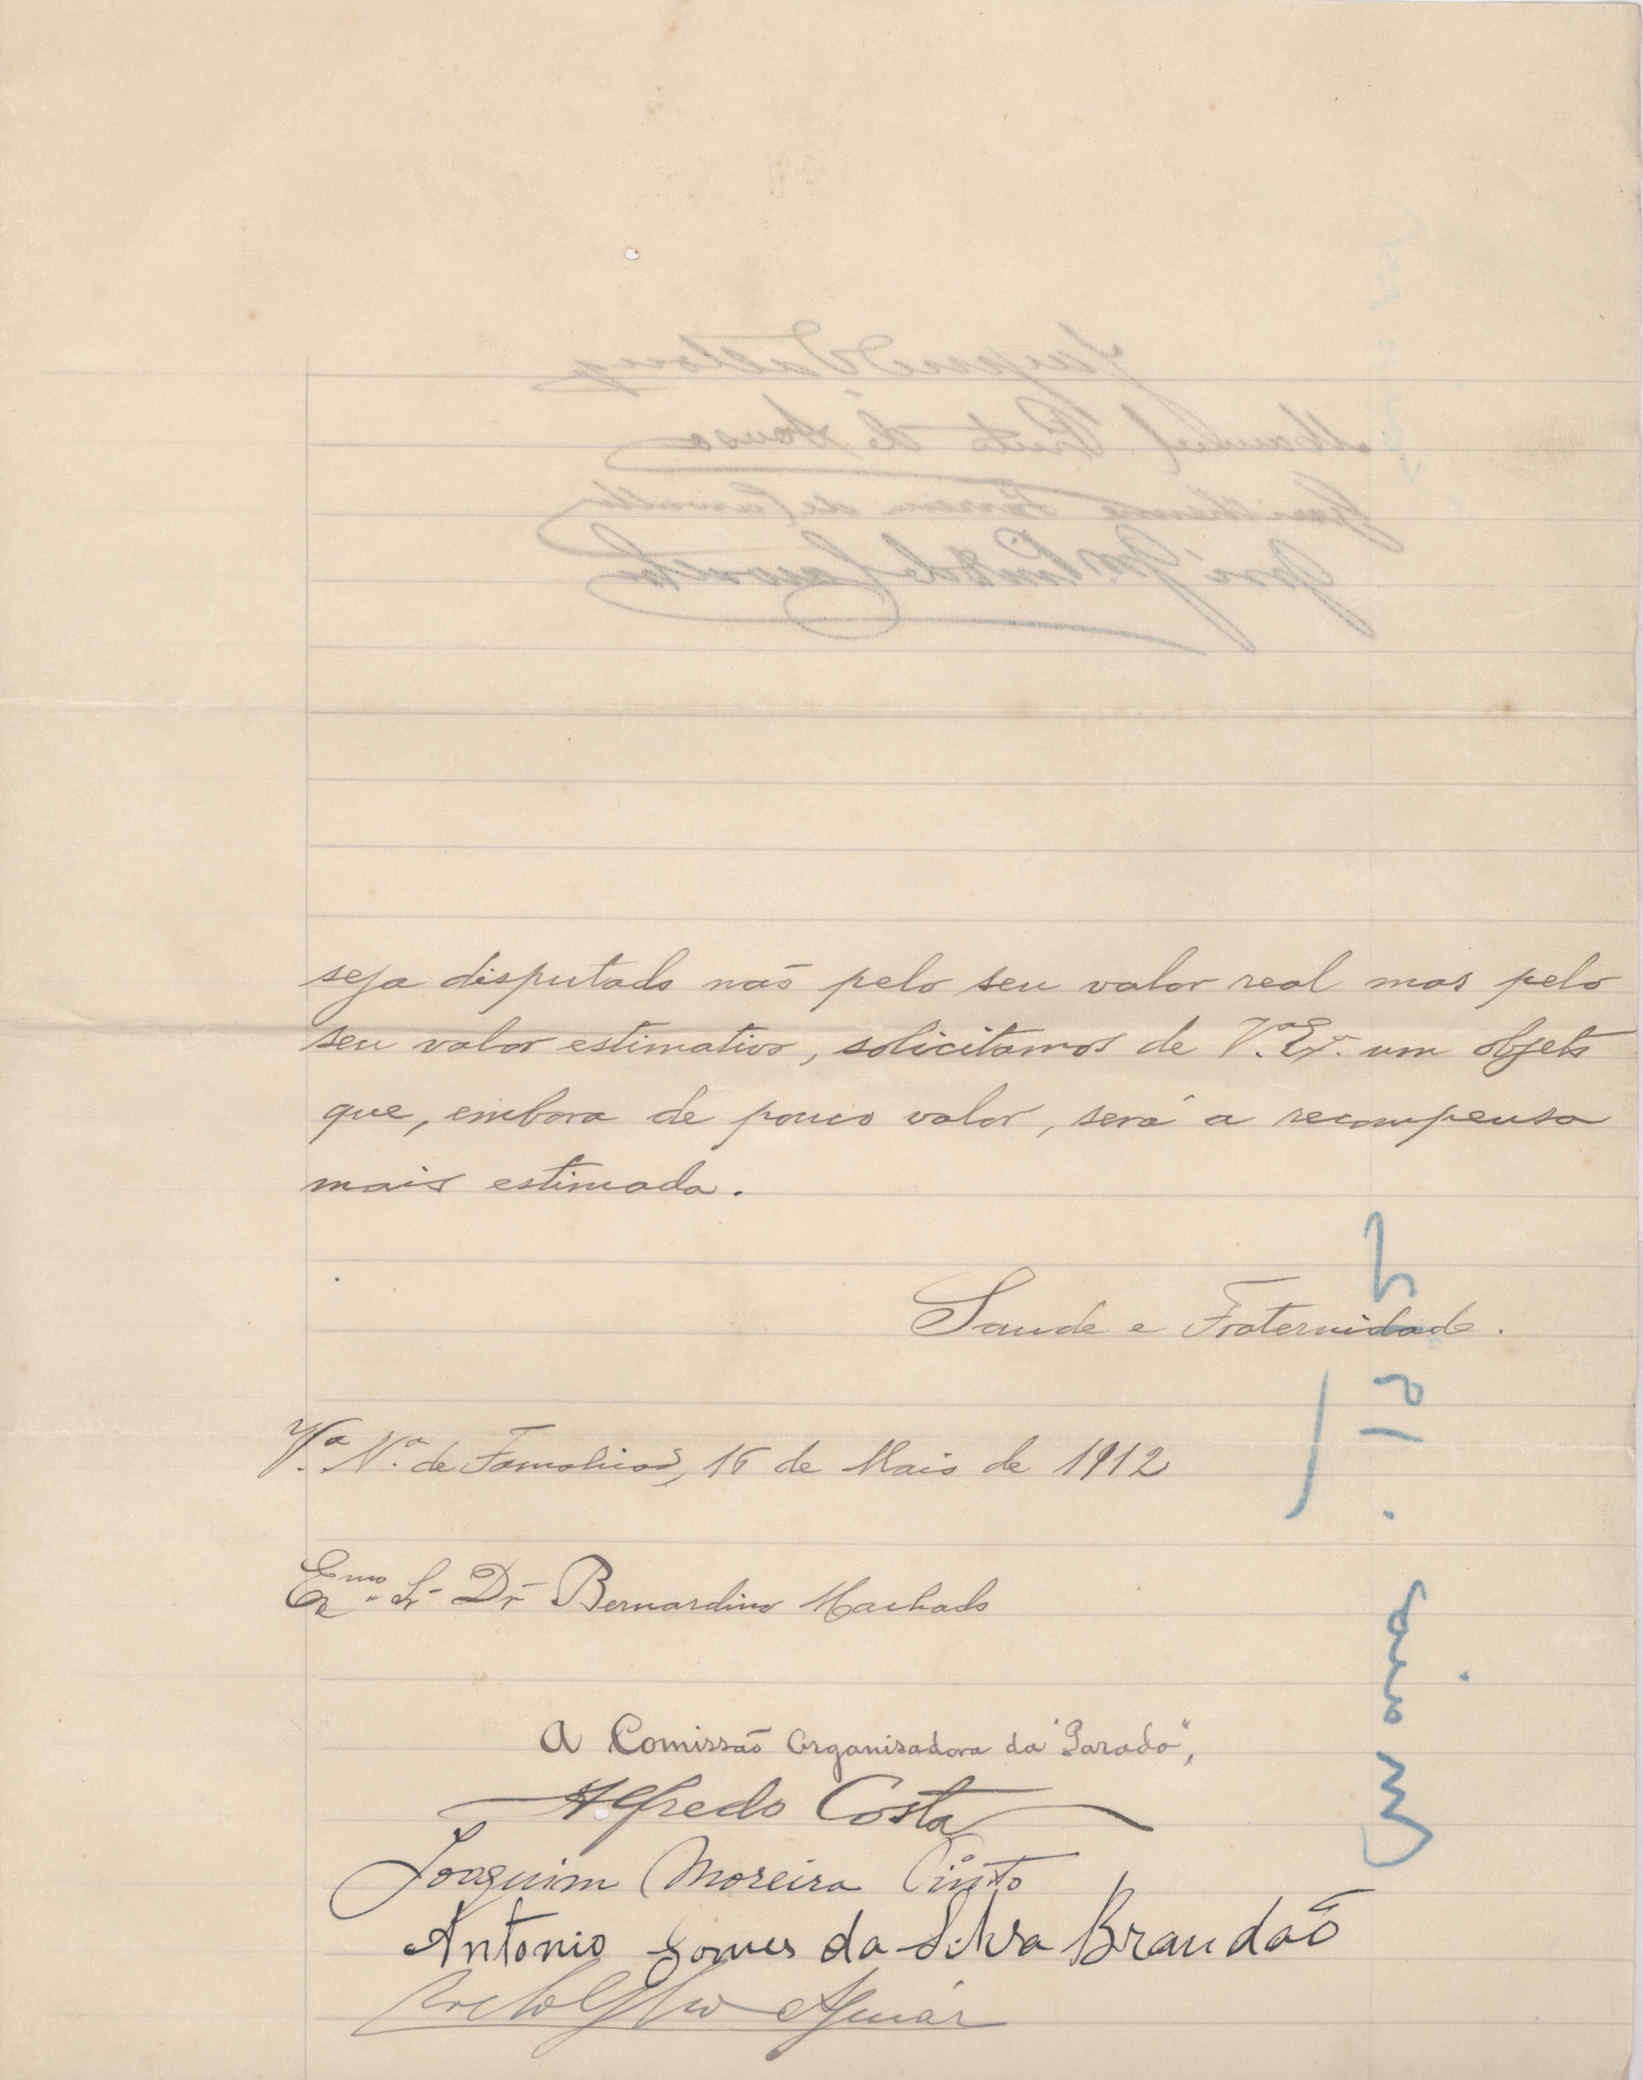 seja disputado não pelo seu valor real mas pelo
seu valor estimativo, solicitamos de V.ª Ex.ª um objeto
que, embora de pouco valor, será a recompensa
mais estimada.
Saude e Fraternidade.
V.ª N.ª de Famalicão, 16 de Maio de 1912
Ex.mo Sr. Dr. Bernardino Machado
A Comissão Organisadora da "Parada",
Alfredo Costa
Joaquim Moreira Pinto
Antonio Gomes da Silva Brandão
Aguiar
Manuel Pinto de Sousa
Guilherme Ferreira de Carvalho
José